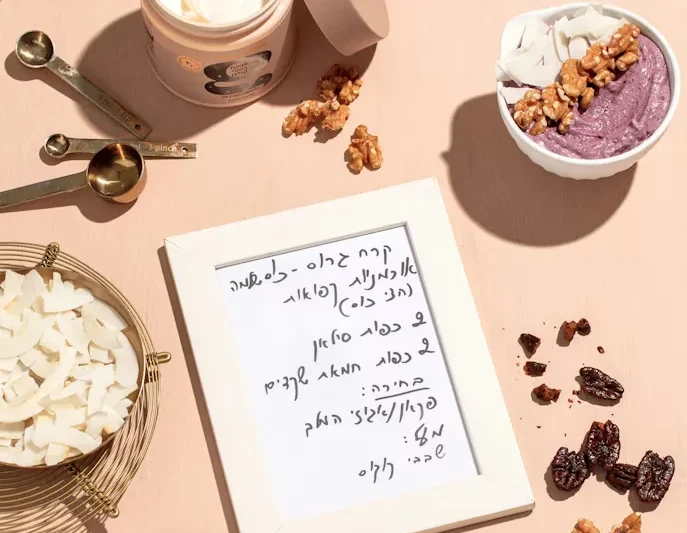 1 pinch
קרח גרוס - כוס שלמה
אוכמניות קפואות
(חצי כוס)
2 כפות סילאן
2 כפות חמאת שקדים
בחירה:
פקאן/אגוזי המלך
מעל:
שבבי קוקוס